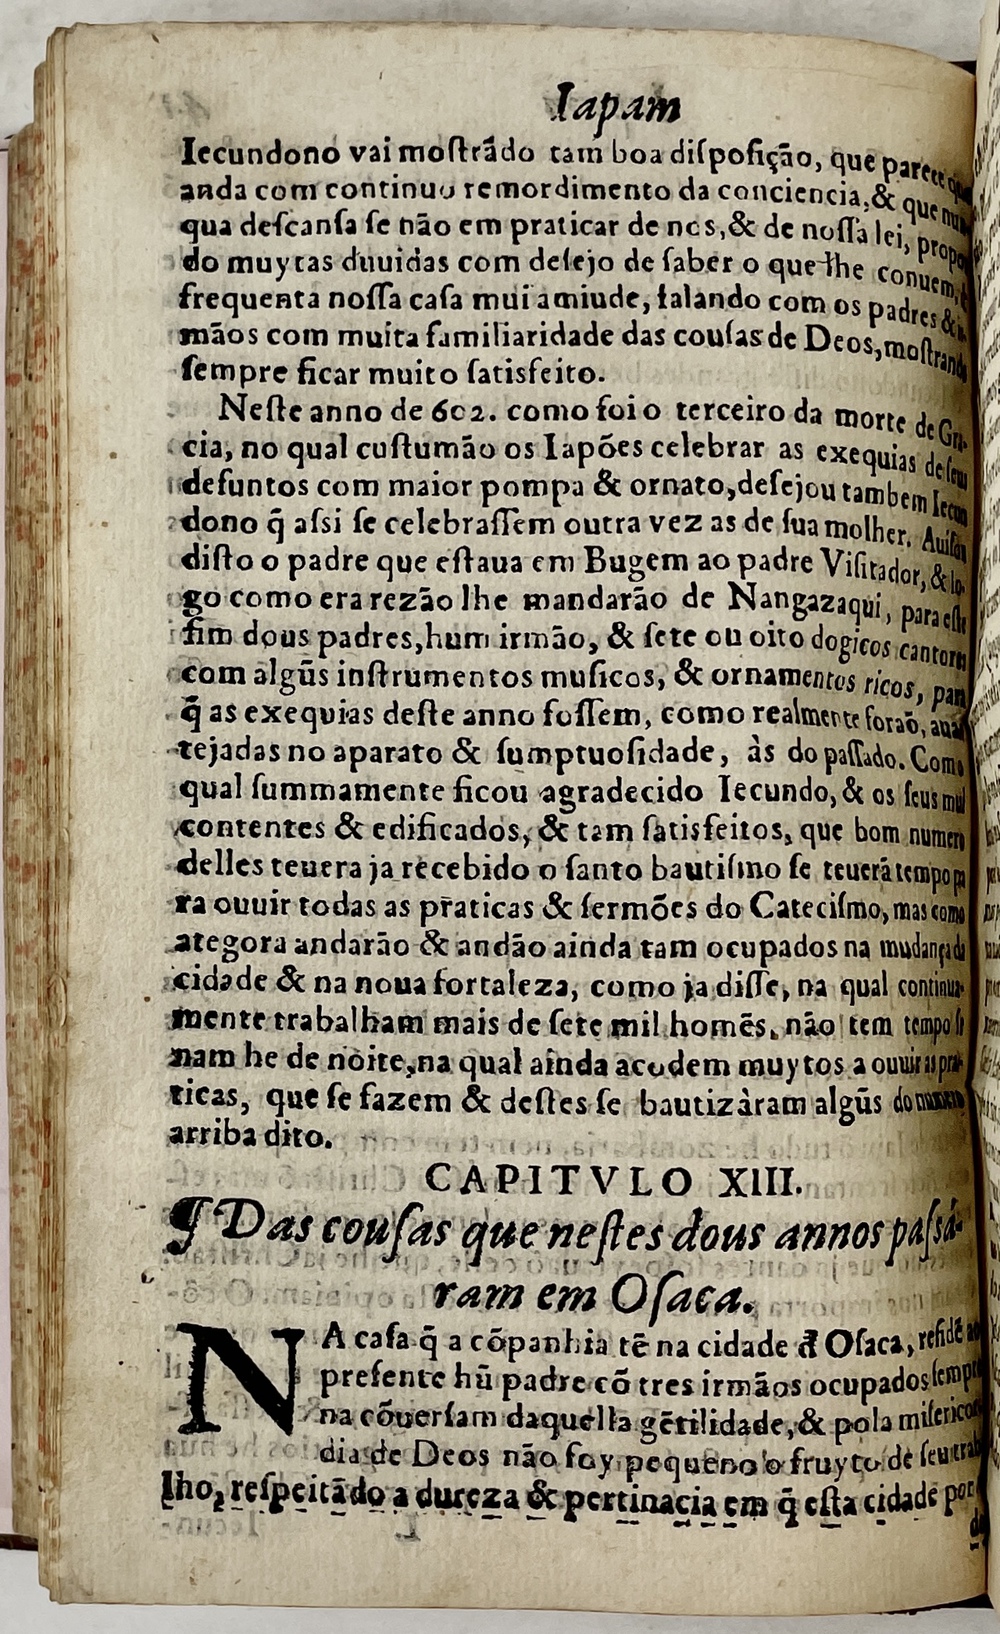 Iapam
Iecundono vai moſtrãdo tam boa diſpoſição, que parece que
anda com continuo remordimento da conciencia,& que nun
qua deſcanſa ſe não em praticar de nos,& de noſſa lei, propo
do muytas duuidas com deſejo de ſaber o que lhe conuem,
frequenta noſſa caſa mui amiude, falando com os padres & ir-
mãos com muita familiaridade das couſas de Deos,moſtrando
ſempre ficar muito ſatisfeito.
Neſte anno de 602. como foi o terceiro da morte de Gra-
cia, no qual cuſtumão os Iapões celebrar as exequias de ſeus
defuntos com maior pompa & ornato,deſejou tambem Iecun
dono q̃ aſsi ſe celebraſſem outra vez as de ſua molher. Auiſou
diſto o padre que eſtaua em Bugem ao padre Viſitador, & lo-
go como era rezão lhe mandarão de Nangazaqui, para eſte
fim dous padres,hum irmão, & ſete ou oito dogicos cantores
com algũs inſtrumentos muſicos, & ornamentos ricos, para
q̃ as exequias deſte anno foſſem, como realmente forão, auan
tejadas no aparato & ſumptuoſidade, às do paſſado. Como
qual ſummamente ficou agradecido Iecundo, & os ſeus mui
contentes & edificados, & tam ſatisfeitos, que bom numero
delles teuera ja recebido o ſanto bautiſmo ſe teuerã tempo pa
ra ouuir todas as praticas & ſermões do Cateciſmo, mas como
ategora andarão & andão ainda tam ocupados na mudança da
cidade & na noua fortaleza, como ja diſſe, na qual continua-
mente trabalham mais de ſete mil homẽs, não tem tempo ſe
nam he de noite,na qual ainda acodem muytos a ouuir as pra-
ticas, que ſe fazem & deſtes ſe bautizàram algũs do numero
arriba dito.
CAPITVLO XIII.
¶ Das couſas que neſtes dous annos paſſá-
ram em Oſaca.
NA caſa q̃ a cõpanhia tẽ na cidade d̃ Oſaca, reſidẽ ao
preſente hũ padre cõ tres irmãos ocupados ſempre
na cõuerſam daquella gẽtilidade,& pola miſericor
dia de Deos não foy pequeno o fruyto de ſeu traba
lho, reſpeitãdo a dureza & pertinacia em q̃ eſta cidade por